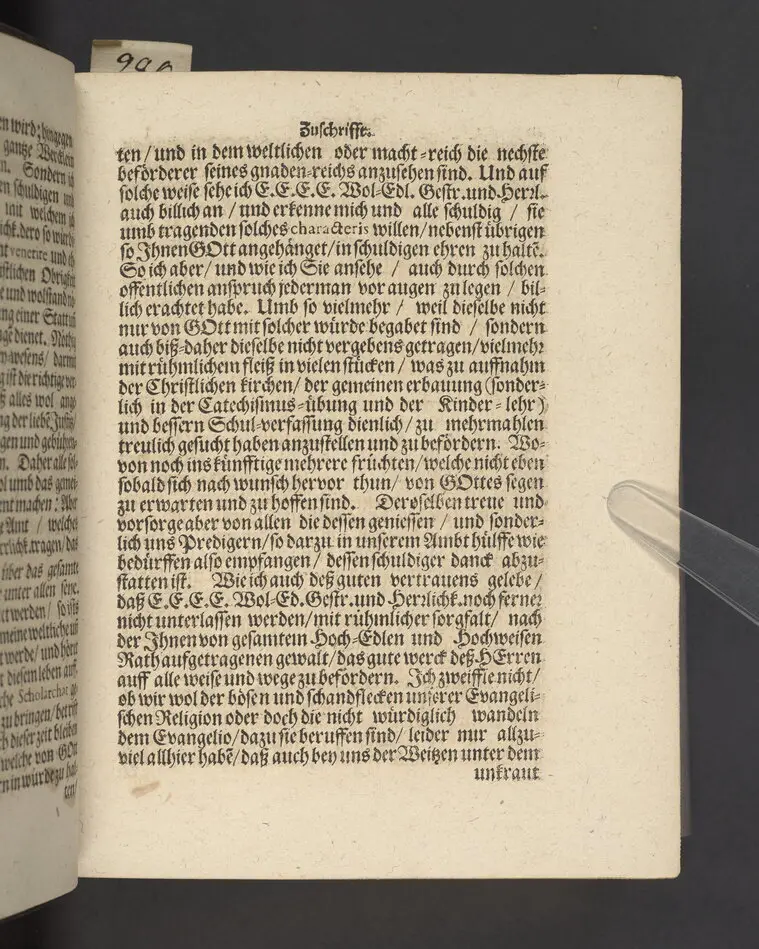 990
Zuschrifft.
ten / und in dem weltlichen oder macht-reich die nechste
beförderer seines gnaden-reichs anzusehen sind. Und auf
solche weise sehe ich E.E.E.E. Wol-Edl. Gestr. und Herrl.
auch billich an / und erkenne mich und alle schuldig / sie
umb tragenden solches characteris willen / nebenst übrigen
so Ihnen GOtt angehänget / in schuldigen ehren zu haltē.
So ich aber / und wie ich Sie ansehe / auch durch solchen
offentlichen anspruch jederman vor augen zu legen / bil-
lich erachtet habe. Umb so vielmehr / weil dieselbe nicht
nur von GOtt mit solcher würde begabet sind / sondern
auch biß-daher dieselbe nicht vergebens getragen / vielmehr
mit rühmlichem fleiß in vielen stücken / was zu auffnahm
der Christlichen kirchen / der gemeinen erbauung (sonder-
lich in der Catechismus-übung und der Kinder-lehr)
und bessern Schul-verfassung dienlich / zu mehrmahlen
treulich gesucht haben anzustellen und zu befördern. Wo-
von noch ins künfftige mehrere früchten / welche nicht eben
sobald sich nach wunsch hervor thun / von GOttes segen
zu erwarten und zu hoffen sind. Deroselben treue und
vorsorge aber von allen die dessen geniessen / und sonder-
lich uns Predigern / so darzu in unserem Ambt hülffe wie
bedürffen also empfangen / dessen schuldiger danck abzu-
statten ist. Wie ich auch deß guten vertrauens gelebe /
daß E.E.E.E. Wol-Ed. Gestr. und Herrlichk. noch ferner
nicht unterlassen werden / mit rühmlicher sorgfalt / nach
der Ihnen von gesamtem Hoch-Edlen und Hochweisen
Rath aufgetragenen gewalt / das gute werck deß HErren
auff alle weise und wege zu befördern. Ich zweiffle nicht /
ob wir wol der bösen und schandflecken unserer Evangeli-
schen Religion oder doch die nicht würdiglich wandeln
dem Evangelio / dazu sie beruffen sind / leider nur allzu-
viel allhier habē / daß auch bey uns der Weitzen unter dem
unkraut